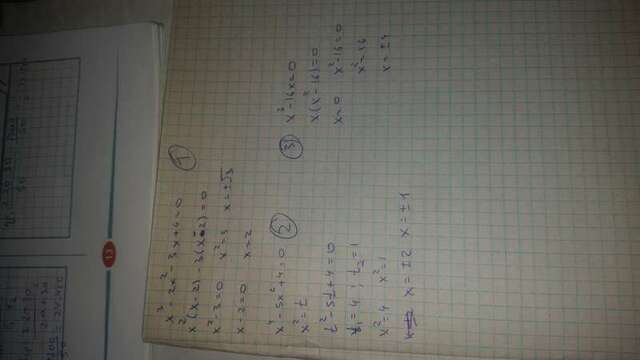 13
x³-2x²-3x+6=0 ①
x²(x-2)-3(x-2)=0
x²-3=0 x²=3 x=±√3
x-2=0 x=2
x⁴-5x²+4=0 ②
x²=t
t²-5t+4=0
t₁=4 ; t₂=1
x²=4 x²=1
x=±2 x=±1
③ x³-16x=0
x(x²-16)=0
x=0 x²-16=0
x²=16
x=±4